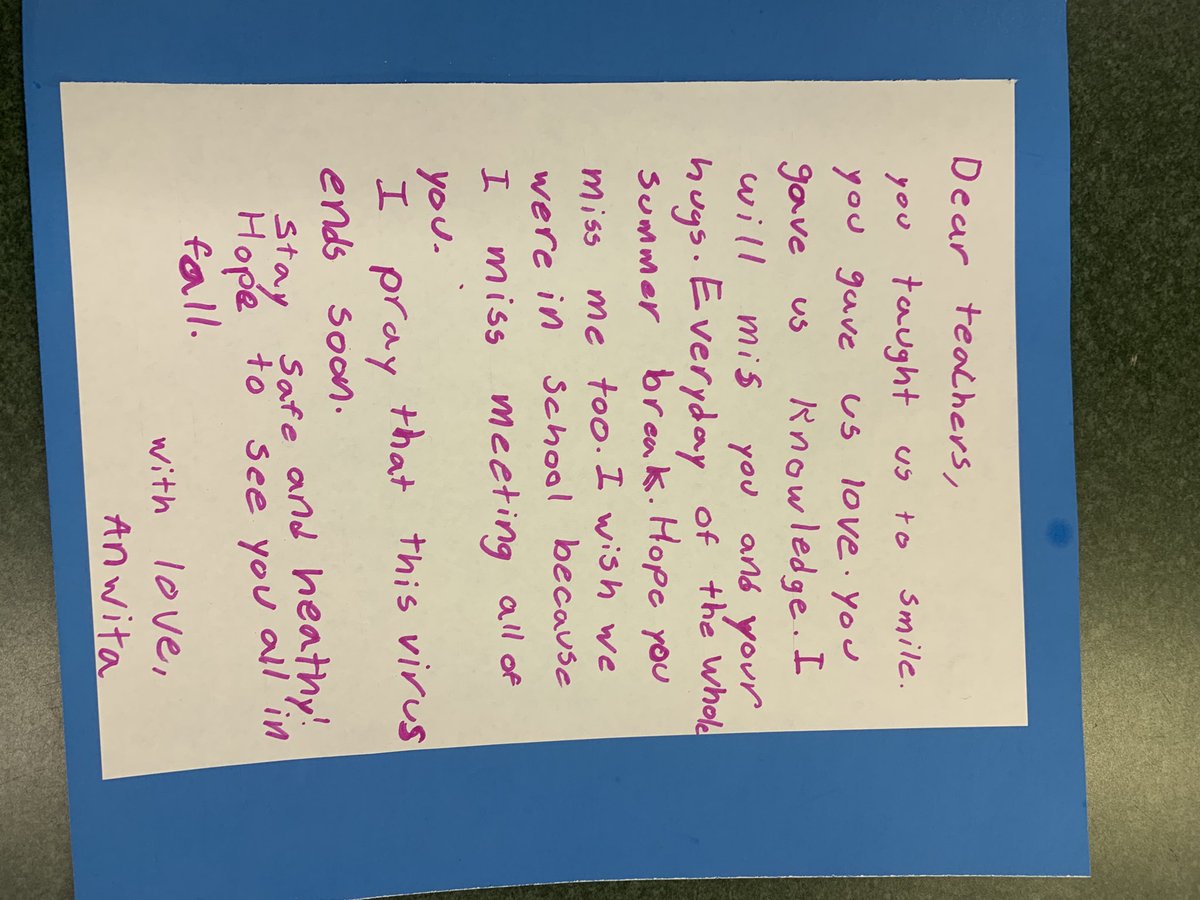 Dear teachers,
you taught us to smile.
you gave us love. you
gave us knowledge. I
will mis you and your
hugs. Everyday of the whole
summer break. Hope you
miss me too. I wish we
were in school because
I miss meeting all of
you.
I pray that this virus
ends soon.
Stay safe and heathy!
Hope to see you all in
fall.
with love,
Anwita